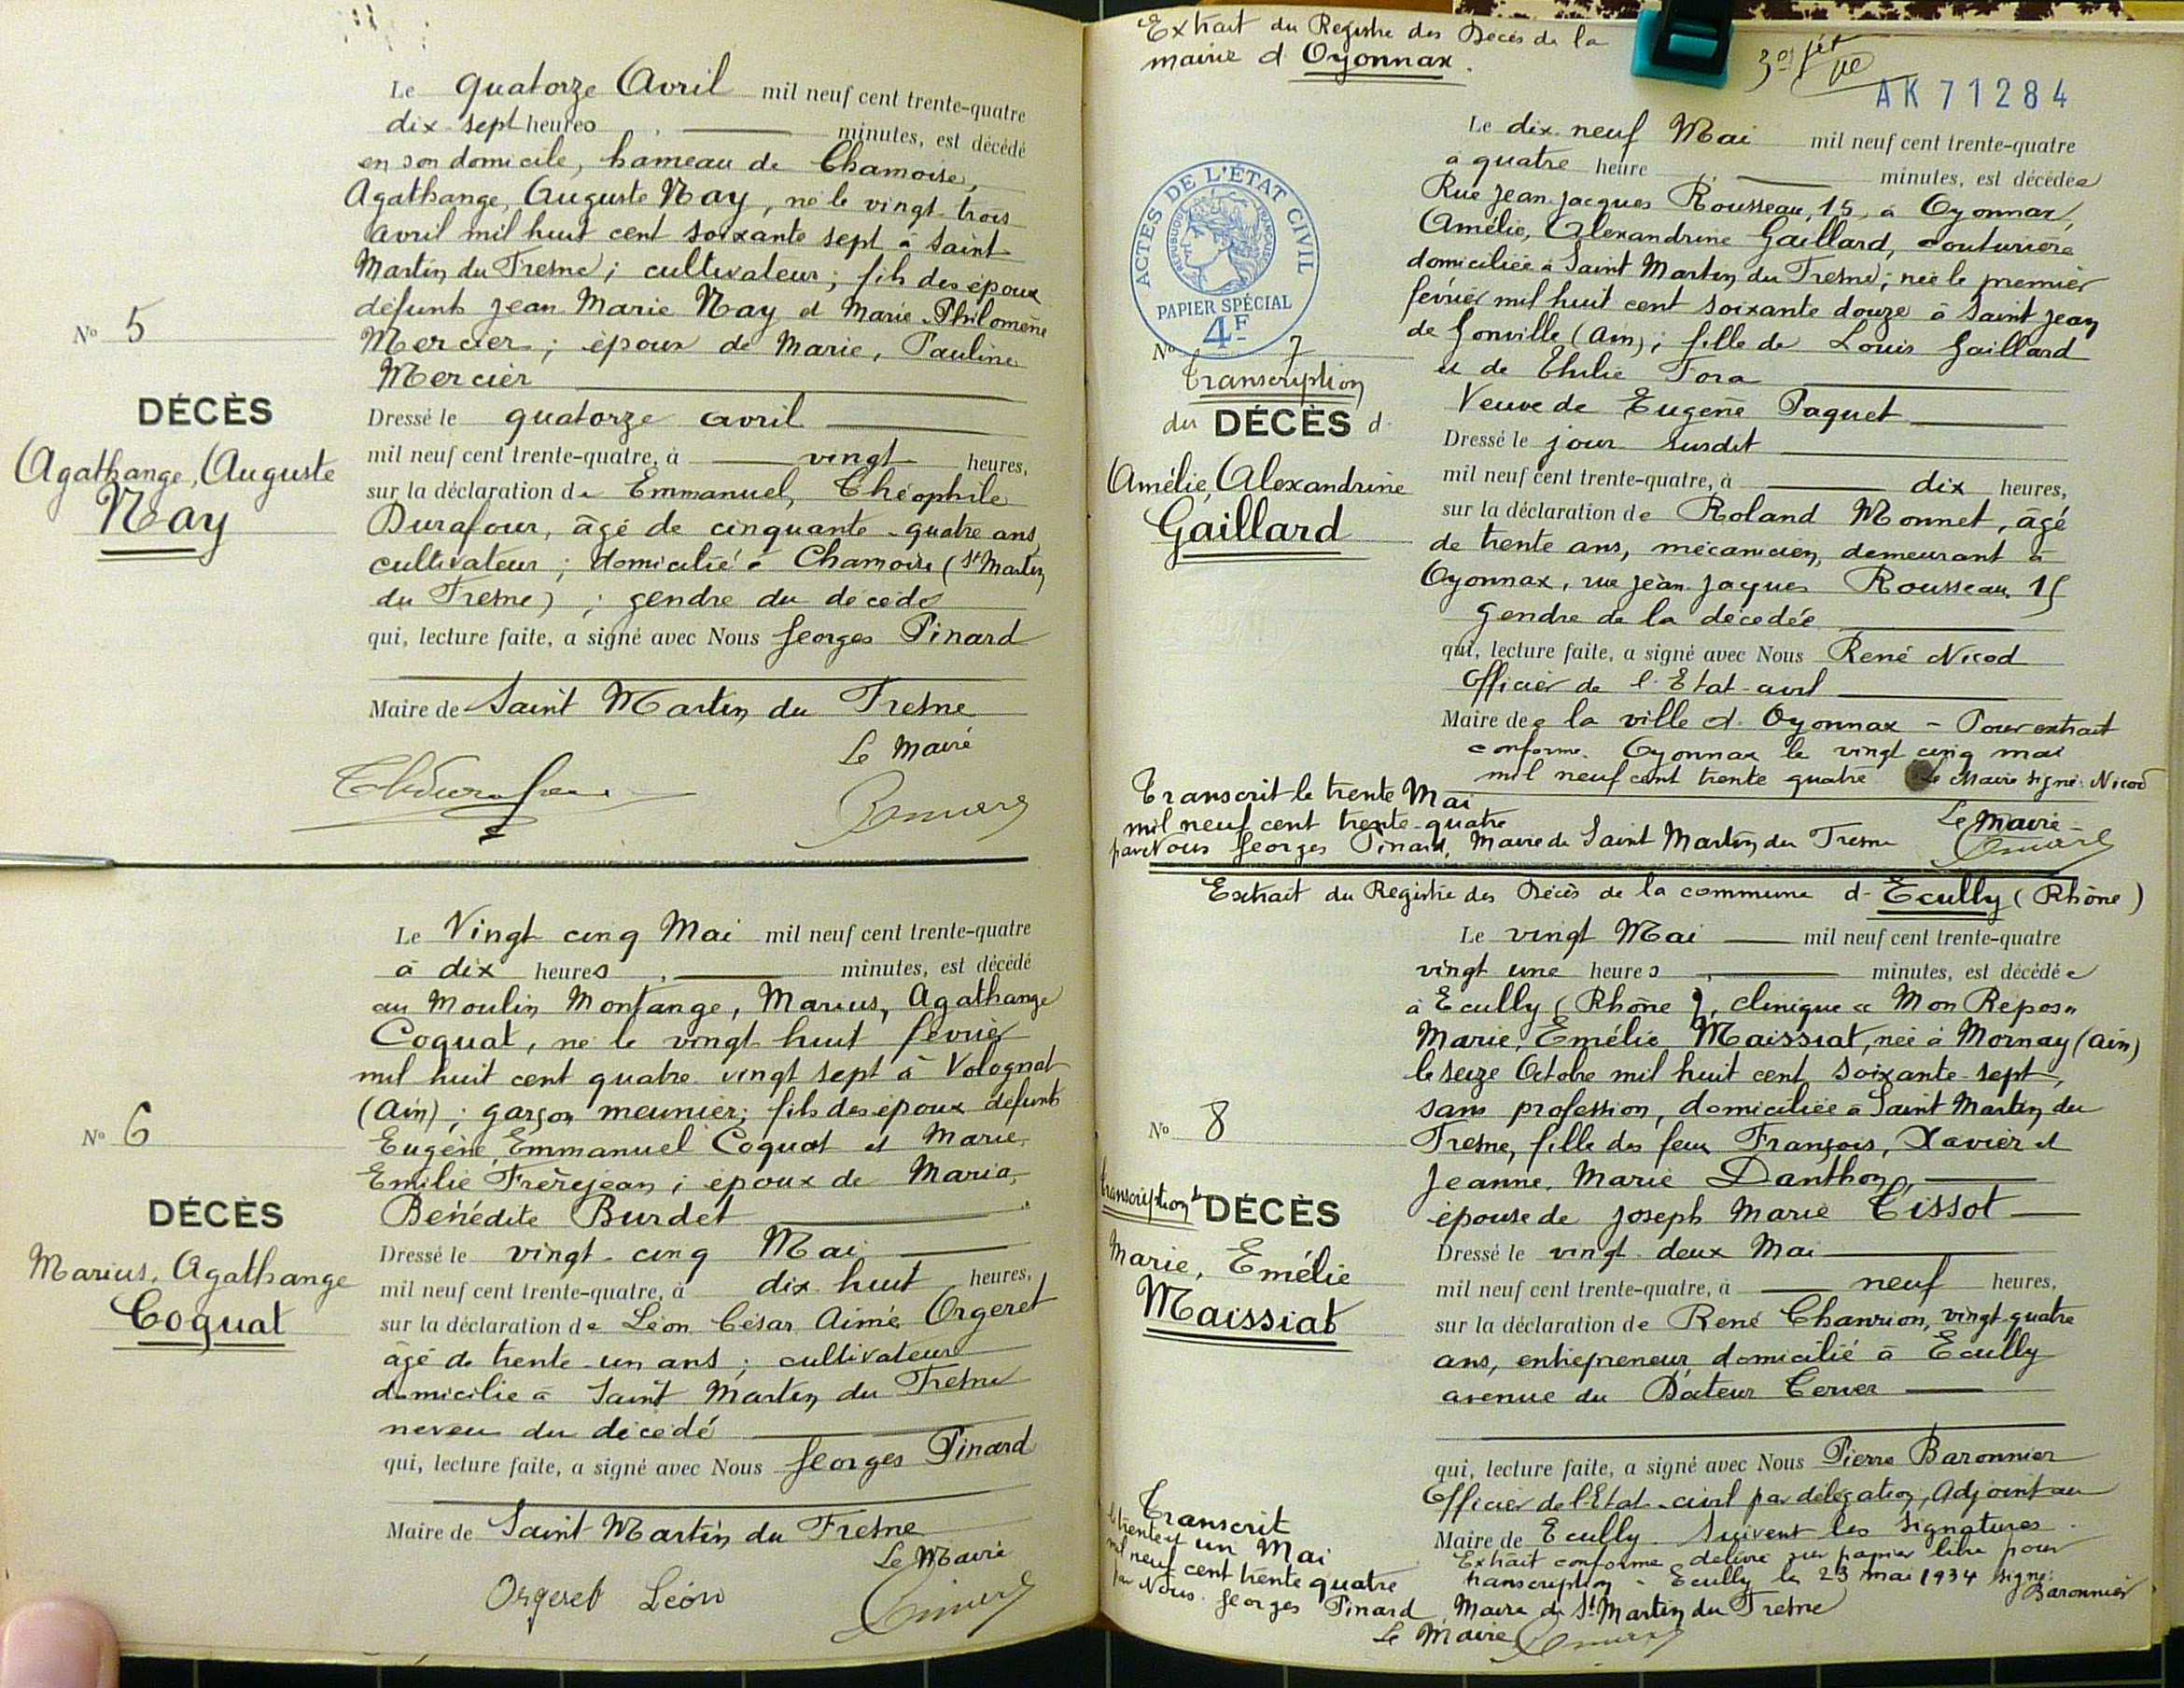 Le quatorze Avril mil neuf cent trente-quatre
dix-sept heures, minutes, est décédé
en son domicile, hameau de Chamoise,
Agathange, Auguste Nay, né le vingt-trois
avril mil huit cent soixante sept à Saint
Martin du Fresne; cultivateur; fils des époux
défunts Jean Marie Nay et Marie-Philomène
Mercier; époux de Marie, Pauline
Mercier
N° 5
DÉCÈS
Agathange, Auguste
Nay
Dressé le quatorze avril
mil neuf cent trente-quatre, à vingt heures,
sur la déclaration de Emmanuel, Théophile
Durafour, âgé de cinquante-quatre ans,
cultivateur; domicilié à Chamoise (St Martin
du Fresne); gendre du décédé
qui, lecture faite, a signé avec Nous Georges Pinard
Maire de Saint Martin du Fresne
Le Maire
Le Vingt cinq Mai mil neuf cent trente-quatre
à dix heures, minutes, est décédé
au Moulin Montange, Marius, Agathange
Coquat, né le vingt huit février
mil huit cent quatre vingt sept à Volognat
(Ain); garçon meunier; fils des époux défunts
Eugène, Emmanuel Coquat et Marie,
Emilie Frèrejean; époux de Maria,
Bénédite Burdet
N° 6
DÉCÈS
Marius, Agathange
Coquat
Dressé le vingt-cinq Mai
mil neuf cent trente-quatre, à dix huit heures,
sur la déclaration de Léon César Aimé Orgeret
âgé de trente-un ans; cultivateur
domicilié à Saint Martin du Fresne
neveu du décédé
qui, lecture faite, a signé avec Nous Georges Pinard
Maire de Saint Martin du Fresne
Le Maire
Orgeret Léon
Extrait du Registre des Décès de la
mairie d'Oyonnax.
AK 71284
Le dix neuf Mai mil neuf cent trente-quatre
à quatre heure, minutes, est décédée
Rue Jean-Jacques Rousseau, 15, à Oyonnax,
Amélie, Alexandrine Gaillard, couturière
domiciliée à Saint Martin du Fresne; née le premier
février mil huit cent soixante douze à Saint Jean
de Gonville (Ain); fille de Louis Gaillard
et de Thilie Fora
Veuve de Eugène Paquet
ACTES DE L'ÉTAT CIVIL
RÉPUBLIQUE FRANÇAISE
PAPIER SPÉCIAL
4F
N° 7
Transcription
du DÉCÈS d
Amélie, Alexandrine
Gaillard
Dressé le jour susdit
mil neuf cent trente-quatre, à dix heures,
sur la déclaration de Roland Monnet, âgé
de trente ans, mécanicien, demeurant à
Oyonnax, rue Jean-Jacques Rousseau, 15
Gendre de la décédée
qui, lecture faite, a signé avec Nous René Nicod
Officier de l'Etat-civil
Maire de la ville d'Oyonnax - Pour extrait
conforme. Oyonnax le vingt cinq mai
mil neuf cent trente quatre Le Maire signé: Nicod
Transcrit le trente Mai
mil neuf cent trente-quatre
par Nous Georges Pinard, Maire de Saint Martin du Fresne
Le Maire
Extrait du Registre des Décès de la commune d'Ecully (Rhône)
Le vingt Mai mil neuf cent trente-quatre
vingt une heures, minutes, est décédée
à Ecully (Rhône), clinique "Mon Repos"
Marie, Emélie Maissiat, née à Mornay (Ain)
le seize Octobre mil huit cent soixante-sept,
sans profession, domiciliée à Saint Martin du
Fresne, fille des feux François, Xavier et
Jeanne, Marie Danthon,
épouse de Joseph Marie Tissot
N° 8
transcription de DÉCÈS
Marie, Emélie
Maissiat
Dressé le vingt-deux Mai
mil neuf cent trente-quatre, à neuf heures,
sur la déclaration de René Chanrion, vingt-quatre
ans, entrepreneur, domicilié à Ecully
avenue du Docteur Terver
qui, lecture faite, a signé avec Nous Pierre Baronnier
Officier de l'Etat-civil par délégation, Adjoint au
Maire de Ecully. Suivent les signatures.
Extrait conforme délivré sur papier libre pour
transcription - Ecully le 23 mai 1934 signé:
Baronnier
Transcrit
le trente et un Mai
mil neuf cent trente quatre
par Nous Georges Pinard, Maire de St Martin du Fresne
Le Maire